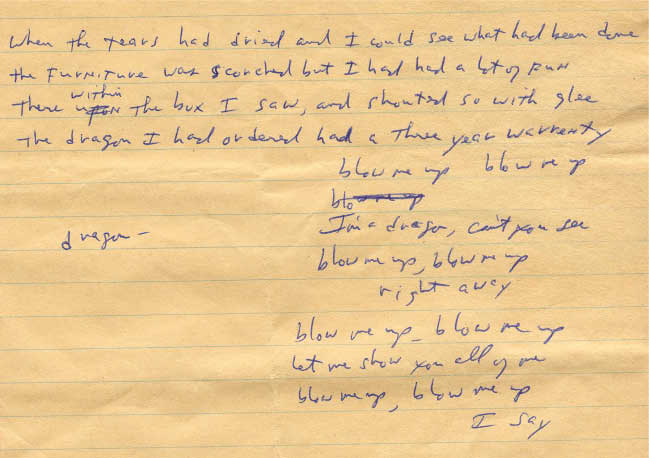 When the tears had dried and I could see what had been done
the furniture was scorched but I had had a lot of fun
There within upon the box I saw, and shouted so with glee
The dragon I had ordered had a three year warrenty
blow me up blow me up
blow me up
dragon - I'm a dragon, can't you see
blow me up, blow me up
right away
blow me up, blow me up
let me show you all of me
blow me up, blow me up
I say